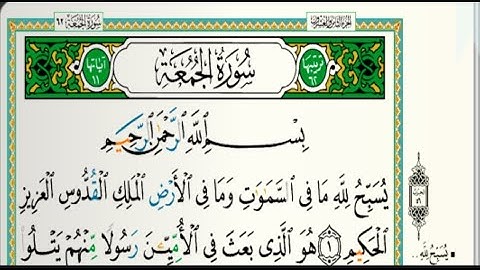 سُورَةُ الجُمُعَة ٦٢
الجزء الثامن والعشرون
ترتيبها ٦٢
سُورَةُ الجُمُعَةِ
آياتها ١١
بِسْمِ اللَّهِ الرَّحْمَٰنِ الرَّحِيمِ
يُسَبِّحُ لِلَّهِ مَا فِى السَّمَٰوَٰتِ وَمَا فِى الْأَرْضِ الْمَلِكِ الْقُدُّوسِ الْعَزِيزِ
الْحَكِيمِ ١ هُوَ الَّذِى بَعَثَ فِى الْأُمِّيِّـنَ رَسُولًا مِّنْهُمْ يَتْلُوا۟
يُسَبِّحُ لِلَّهِ..